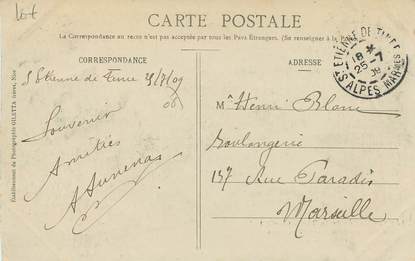 Lot
CARTE POSTALE
La Correspondance au recto n'est pas acceptée par tous les Pays Étrangers. (Se renseigner à la
CORRESPONDANCE
ADRESSE
Etablissement de Photographie GILETTA frères, Nice
St Etienne de Tinée 25/7/08
Souvenir
Amitiés
ST ETIENNE DE TINÉE
18 * 25 -7 08
ALPES MARMES
Mr Henri Blanc
Boulangerie
137 Rue Paradis
Marseille